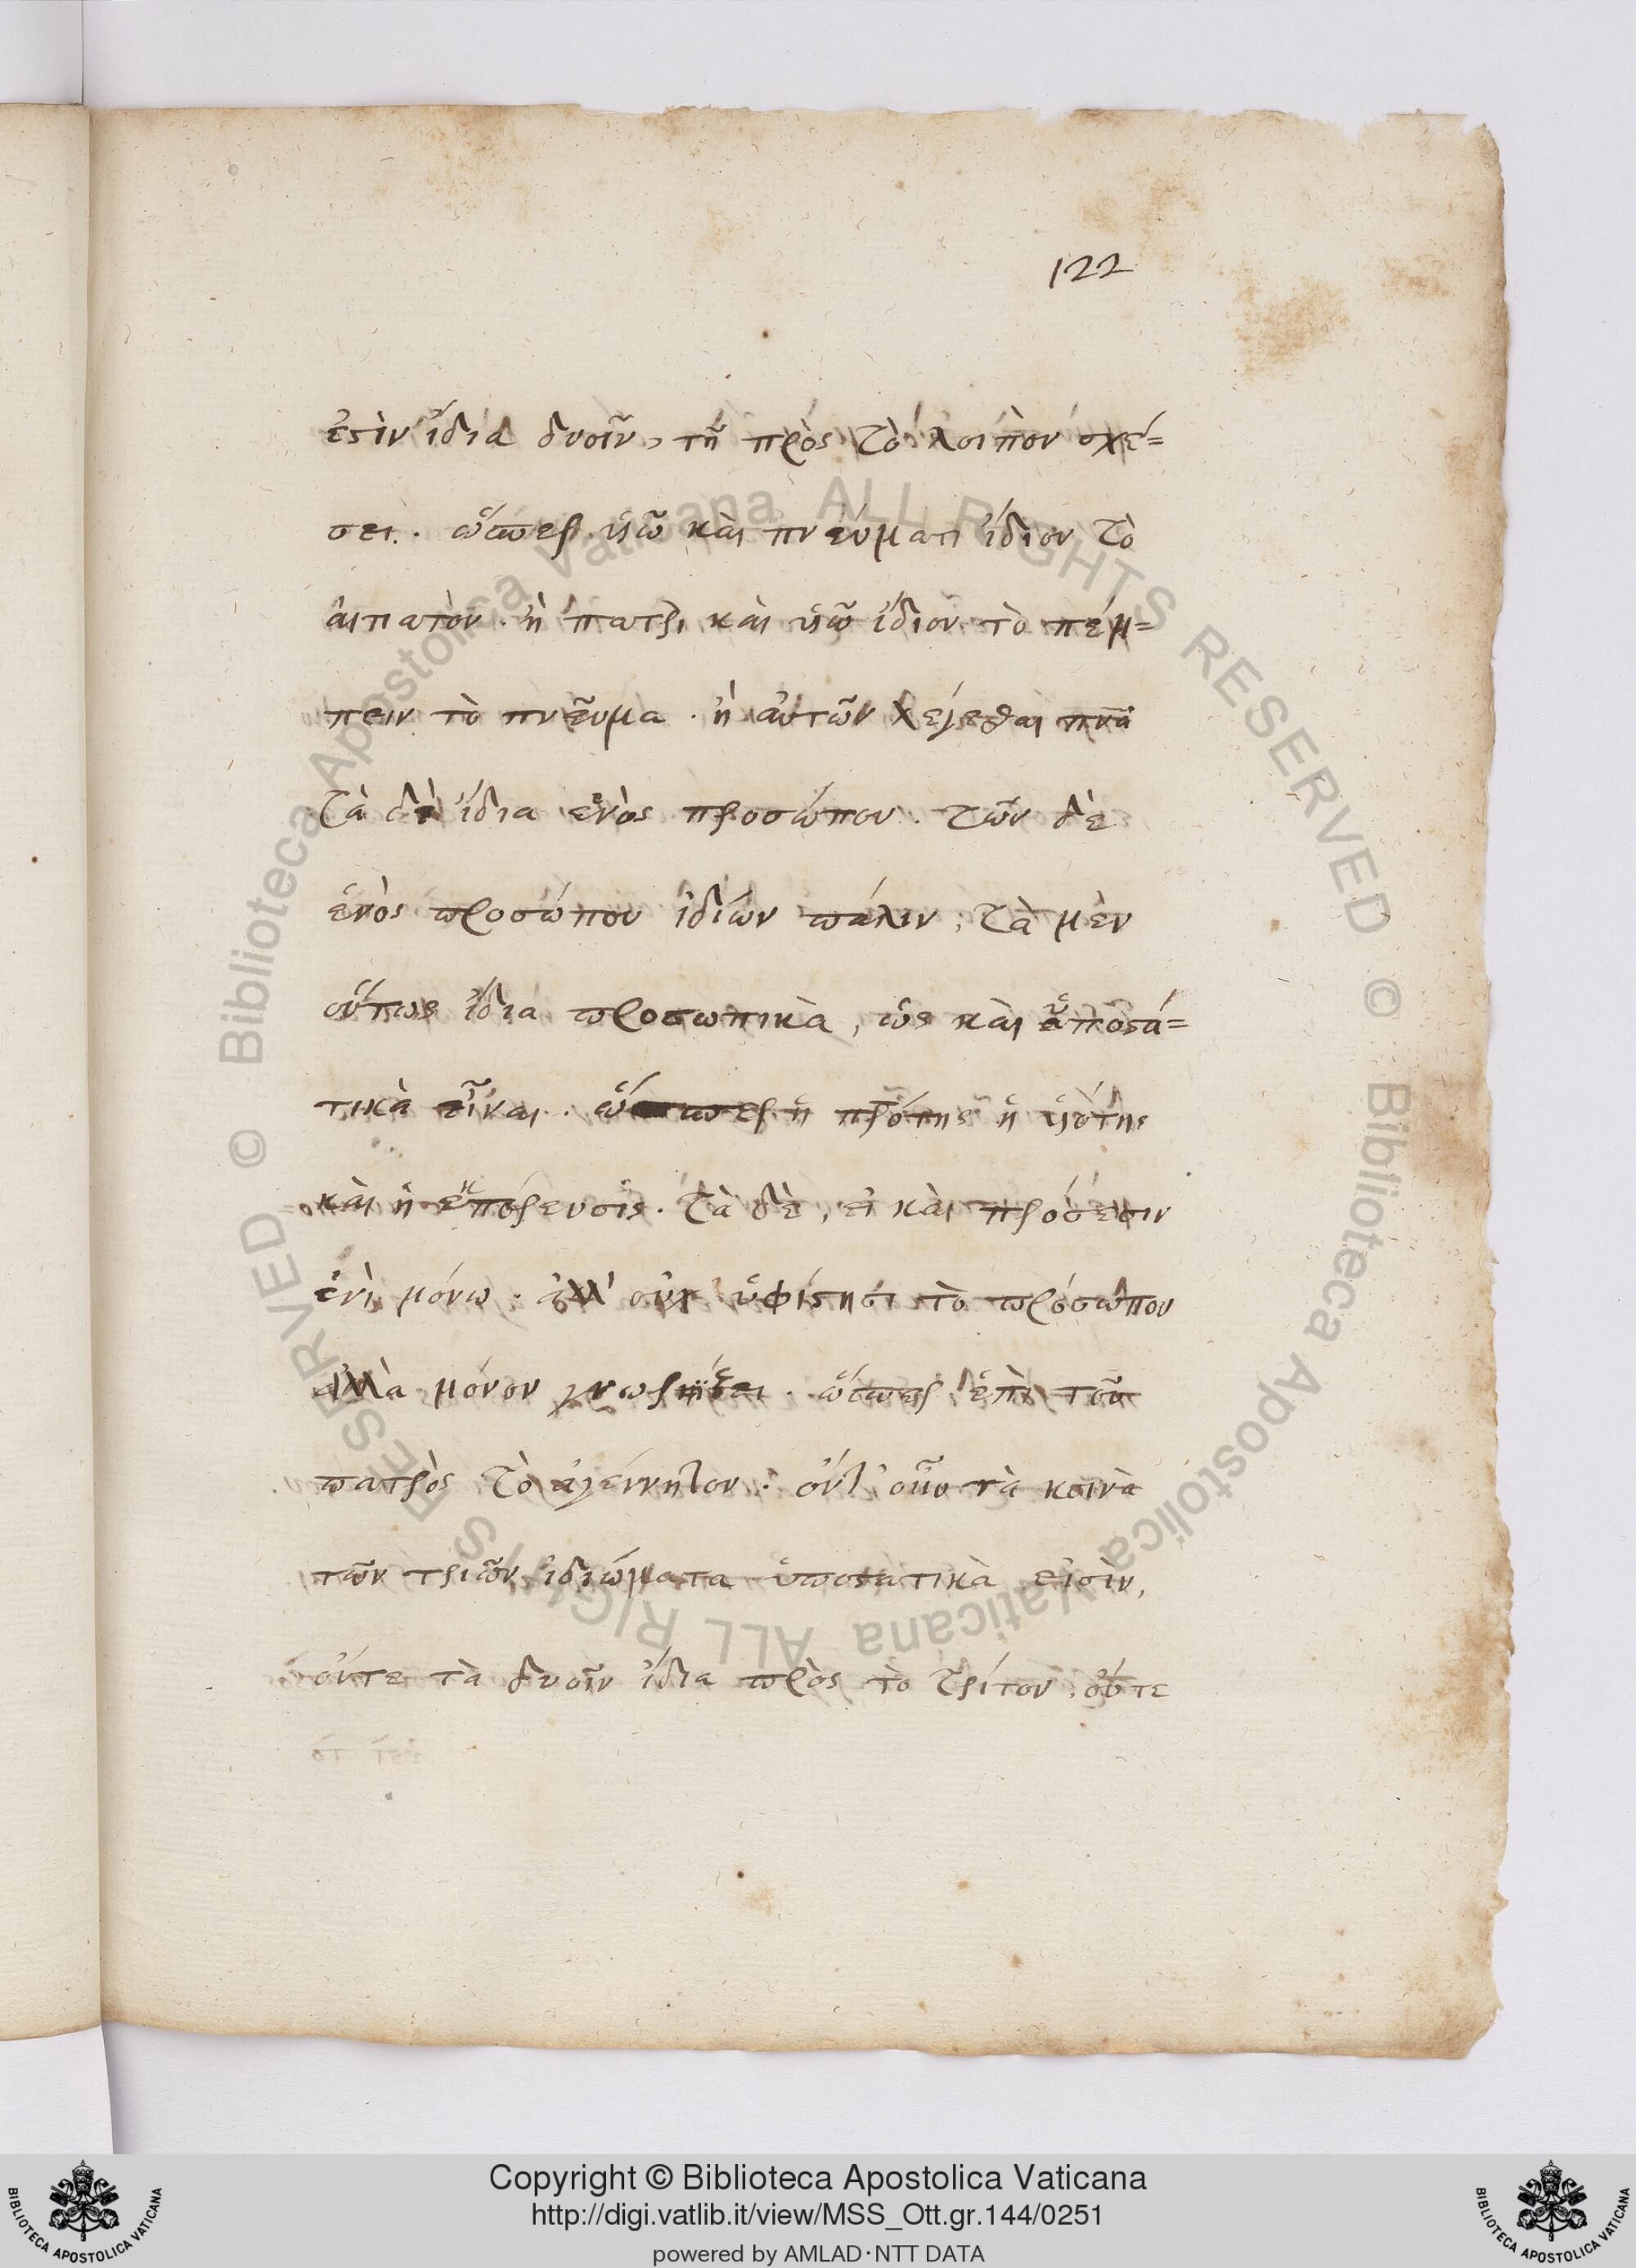 122
ἐστὶν ἴδια δυοῖν, τῇ πρὸς τὸ λοιπὸν σχέ=
σει. ὥσπερ υἱῷ καὶ πνεύματι ἴδιον τὸ
αἰτιατὸν. ἢ πατρὶ καὶ υἱῷ ἴδιον τὸ πέμ=
πειν τὸ πνεῦμα. ἢ αὐτῶν λέγεσθαι πνᾶ
τὰ δὲ ἴδια ἑνὸς προσώπου. τῶν δὲ
ἑνὸς προσώπου ἰδίων πάλιν, τὰ μὲν
οὕτως ἴδια προσωπικὰ, ὡς καὶ ὑποστα=
τικὰ εἶναι. ὥσπερ ἡ πρότης ἡ υἱότης
καὶ ἡ ἐκπόρευσις. τὰ δὲ, εἰ καὶ πρόσεστιν
ἑνὶ μόνω. ἀλλ' οὐχ ὑφίστησι τὸ πρόσωπον
ἀλλὰ μόνον γνωρίζει. ὥσπερ ἐπὶ τοῦ
πατρὸς τὸ ἀγέννητον. οὔτ' οὖν τὰ κοινὰ
τῶν τριῶν ἰδιώματα ὑποστατικὰ εἰσὶν,
οὔτε τὰ δυοῖν ἴδια πρὸς τὸ τρίτον, οὔτε
© Biblioteca Apostolica Vaticana ALL RIGHTS RESERVED
© Biblioteca Apostolica Vaticana ALL RIGHTS RESERVED
Copyright © Biblioteca Apostolica Vaticana
http://digi.vatlib.it/view/MSS_Ott.gr.144/0251
powered by AMLAD·NTT DATA
BIBLIOTECA APOSTOLICA VATICANA
BIBLIOTECA APOSTOLICA VATICANA